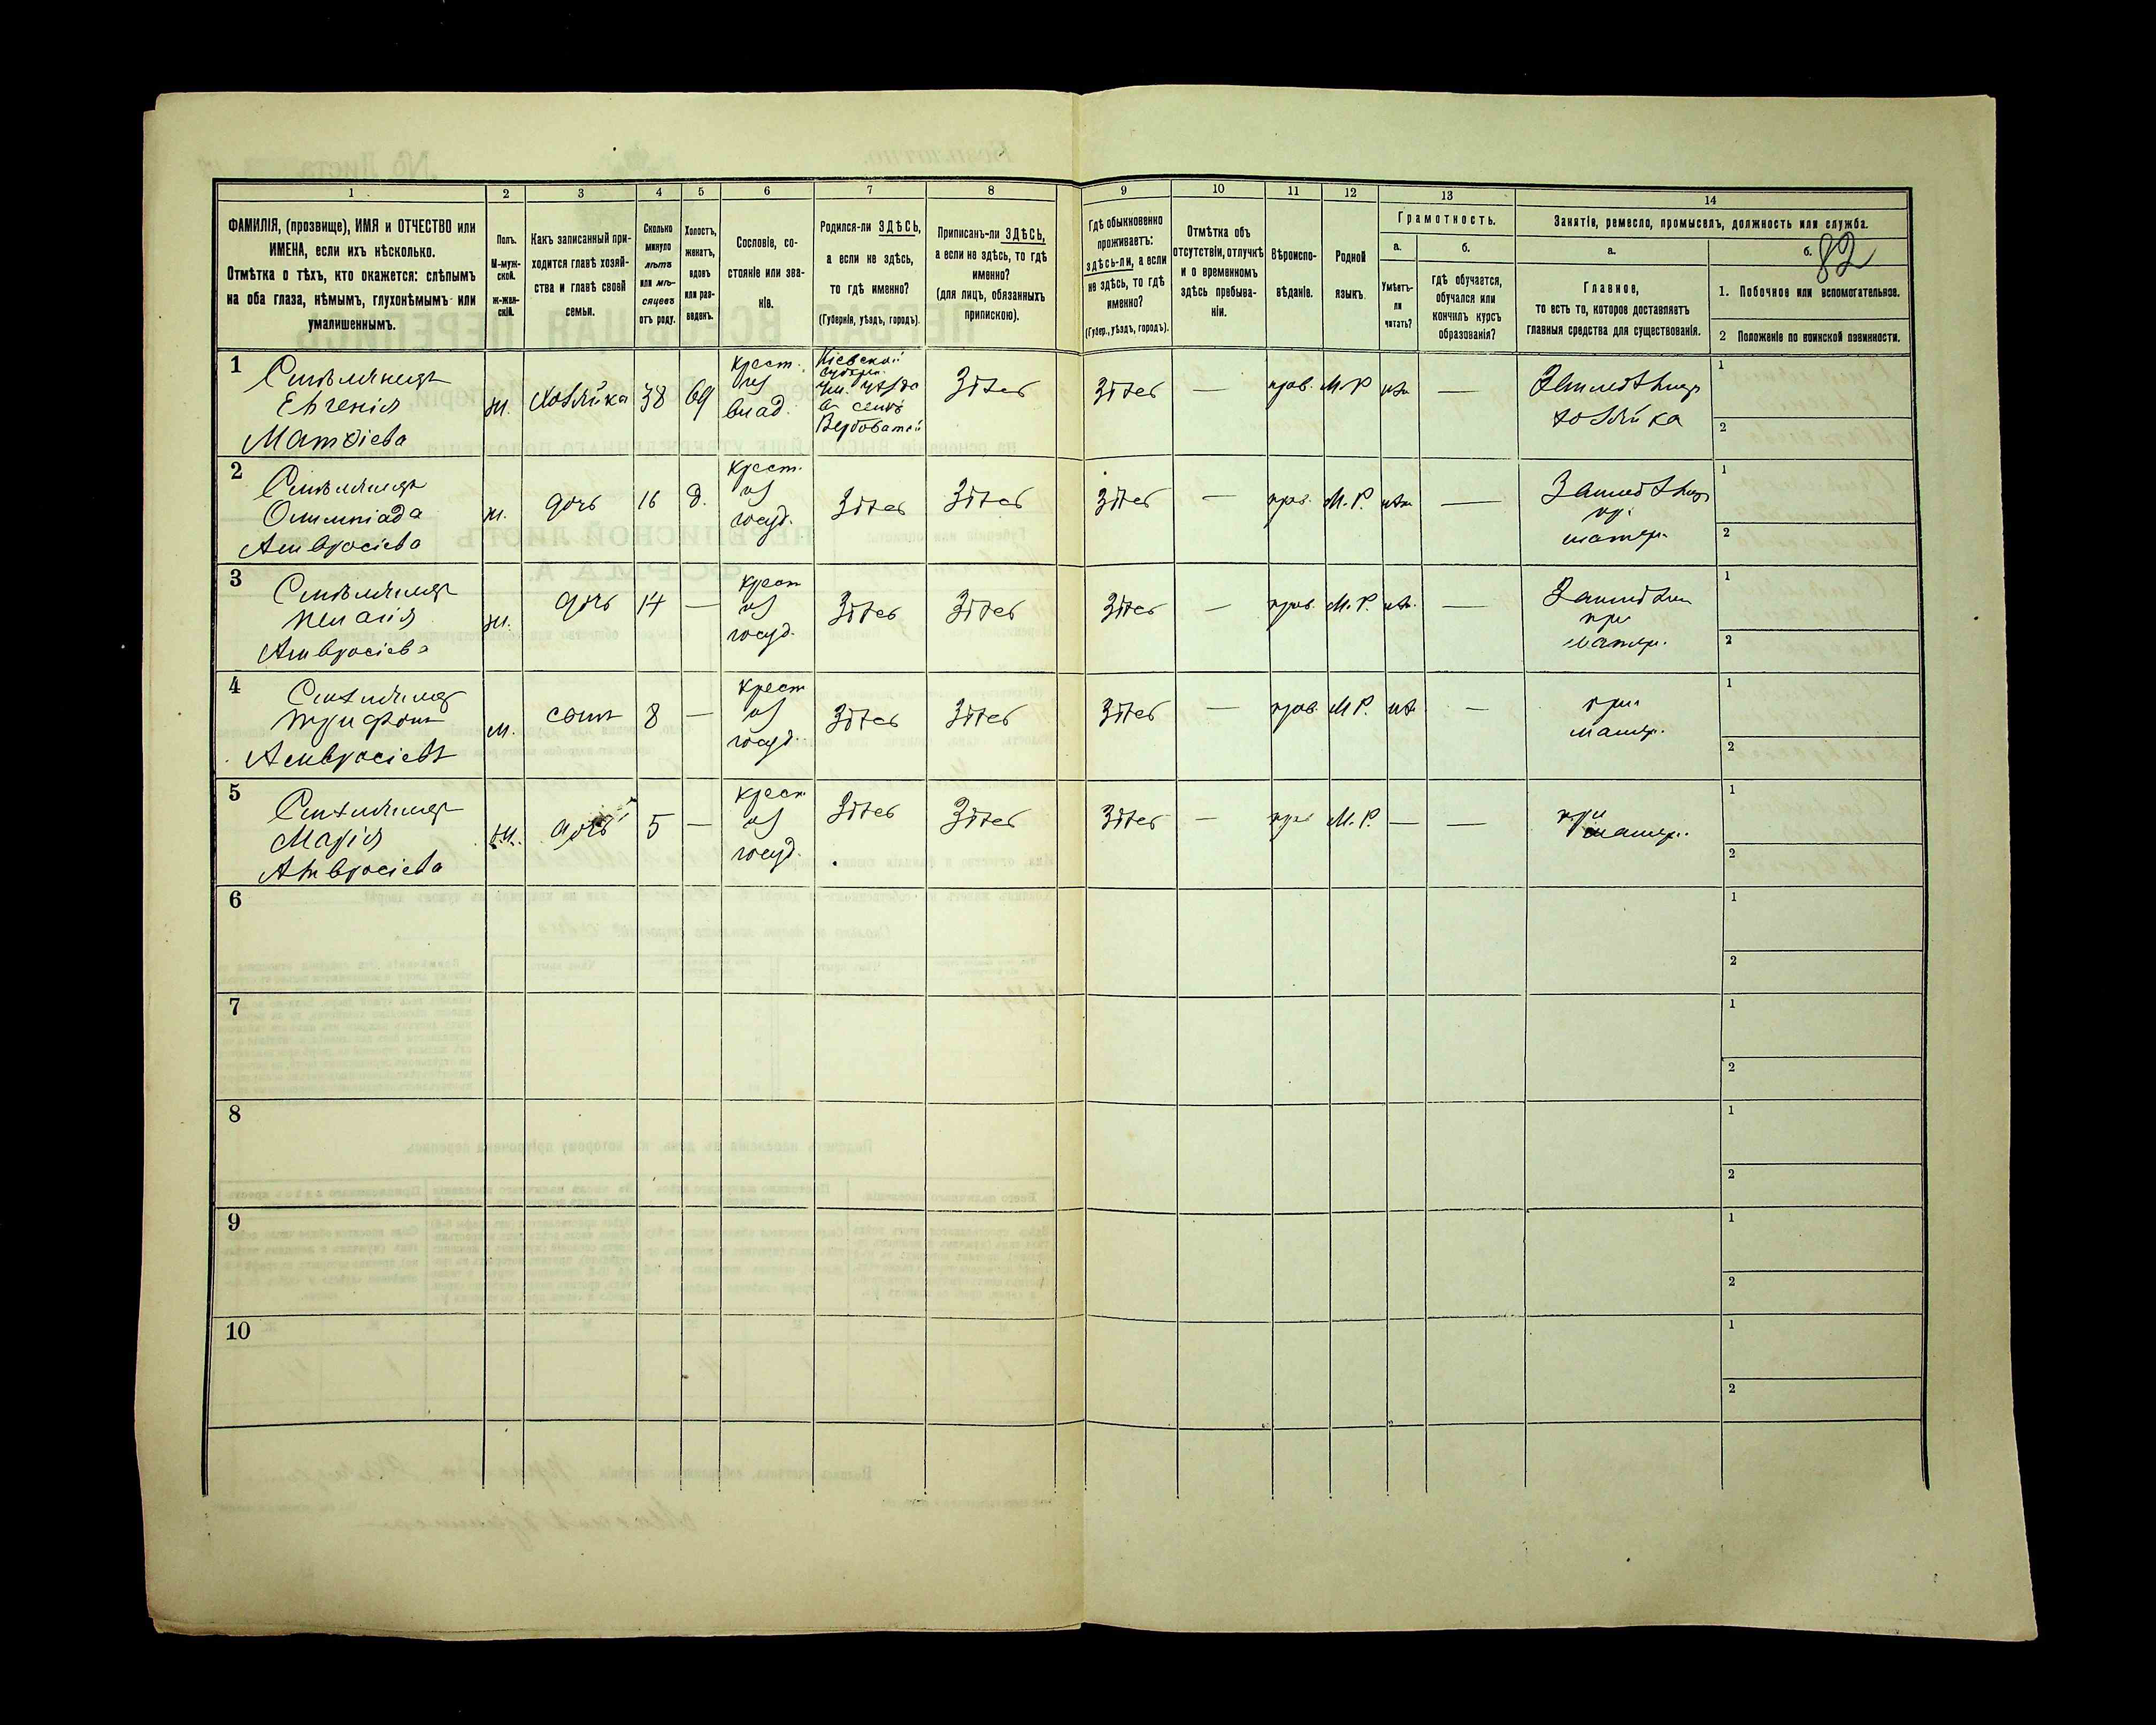 82
1 2 3 4 5 6 7 8 9 10 11 12 13 14
ФАМИЛІЯ, (прозвище), ИМЯ и ОТЧЕСТВО или
ИМЕНА, если ихъ нѣсколько.
Отмѣтка о тѣхъ, кто окажется: слѣпымъ
на оба глаза, нѣмымъ, глухонѣмымъ или
умалишеннымъ.
Полъ.
М-муж-
ской.
ж-жен-
скій.
Какъ записанный при-
ходится главѣ хозяй-
ства и главѣ своей
семьи.
Сколько
минуло
лѣтъ
или мѣ-
сяцевъ
отъ роду.
Холостъ,
женатъ,
вдовъ
или раз-
веденъ.
Сословіе, со-
стояніе или зва-
ніе.
Родился-ли ЗДѢСЬ,
а если не здѣсь,
то гдѣ именно?
(Губернія, уѣздъ, городъ).
Приписанъ-ли ЗДѢСЬ,
а если не здѣсь, то гдѣ
именно?
(для лицъ, обязанныхъ
припискою).
Гдѣ обыкновенно
проживаетъ:
здѣсь-ли, а если
не здѣсь, то гдѣ
именно?
(Губер., уѣздъ, городъ).
Отмѣтка объ
отсутствіи, отлучкѣ
и о временномъ
здѣсь пребыва-
ніи.
Вѣроиспо-
вѣданіе.
Родной
языкъ.
Грамотность.
а.
Умѣетъ-
ли
читать?
б.
гдѣ обучается,
обучался или
кончилъ курсъ
образованія?
Занятіе, ремесло, промыселъ, должность или служба.
а.
Главное,
то есть то, которое доставляетъ
главныя средства для существованія.
б.
1. Побочное или вспомогательное.
2 Положеніе по воинской повинности.
1
Евгенія
Матѳіева
ж.
хозяйка
38
вд
крест.
из
влад.
Кіевской
губерн.
Ум. уѣзда
в селѣ
Здѣсь
Здѣсь
—
прав.
М. Р.
нѣт
—
хозяйка
1
2
2
Олимпіада
Амвросіева
ж.
дочь
16
д.
крест.
из
госуд.
Здѣсь
Здѣсь
Здѣсь
—
прав.
М. Р.
нѣт
—
при
матер.
1
2
3
Пелагія
Амвросіева
ж.
дочь
14
—
крест
из
госуд.
Здѣсь
Здѣсь
Здѣсь
—
прав.
М. Р.
нѣт.
—
при
матер.
1
2
4
Трифон
Амвросіевъ
м.
сынъ
8
—
крест
из
госуд.
Здѣсь
Здѣсь
Здѣсь
—
прав.
М. Р.
нѣт
—
при
матер.
1
2
5
Марія
Амвросіева
ж.
дочь
5
—
крест
из
госуд.
Здѣсь
Здѣсь
Здѣсь
—
прав
М. Р.
—
—
при
матер.
1
2
6
1
2
7
1
2
8
1
2
9
1
2
10
1
2